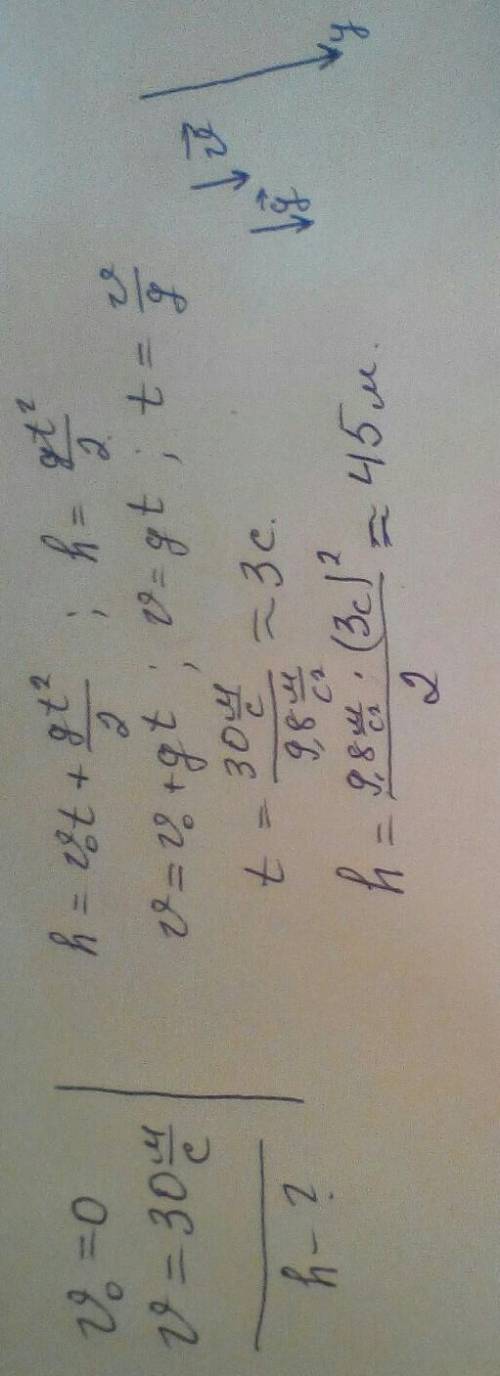 v₀ = 0
v = 30 м/с
h – ?
h = v₀t + gt²/2 ; h = gt²/2
v = v₀ + gt ; v = gt ; t = v/g
t = 30 м/с / 9,8 м/с² ≈ 3 с.
h = 9,8 м/с² · (3с)² / 2 ≈ 45 м.
v
g
y